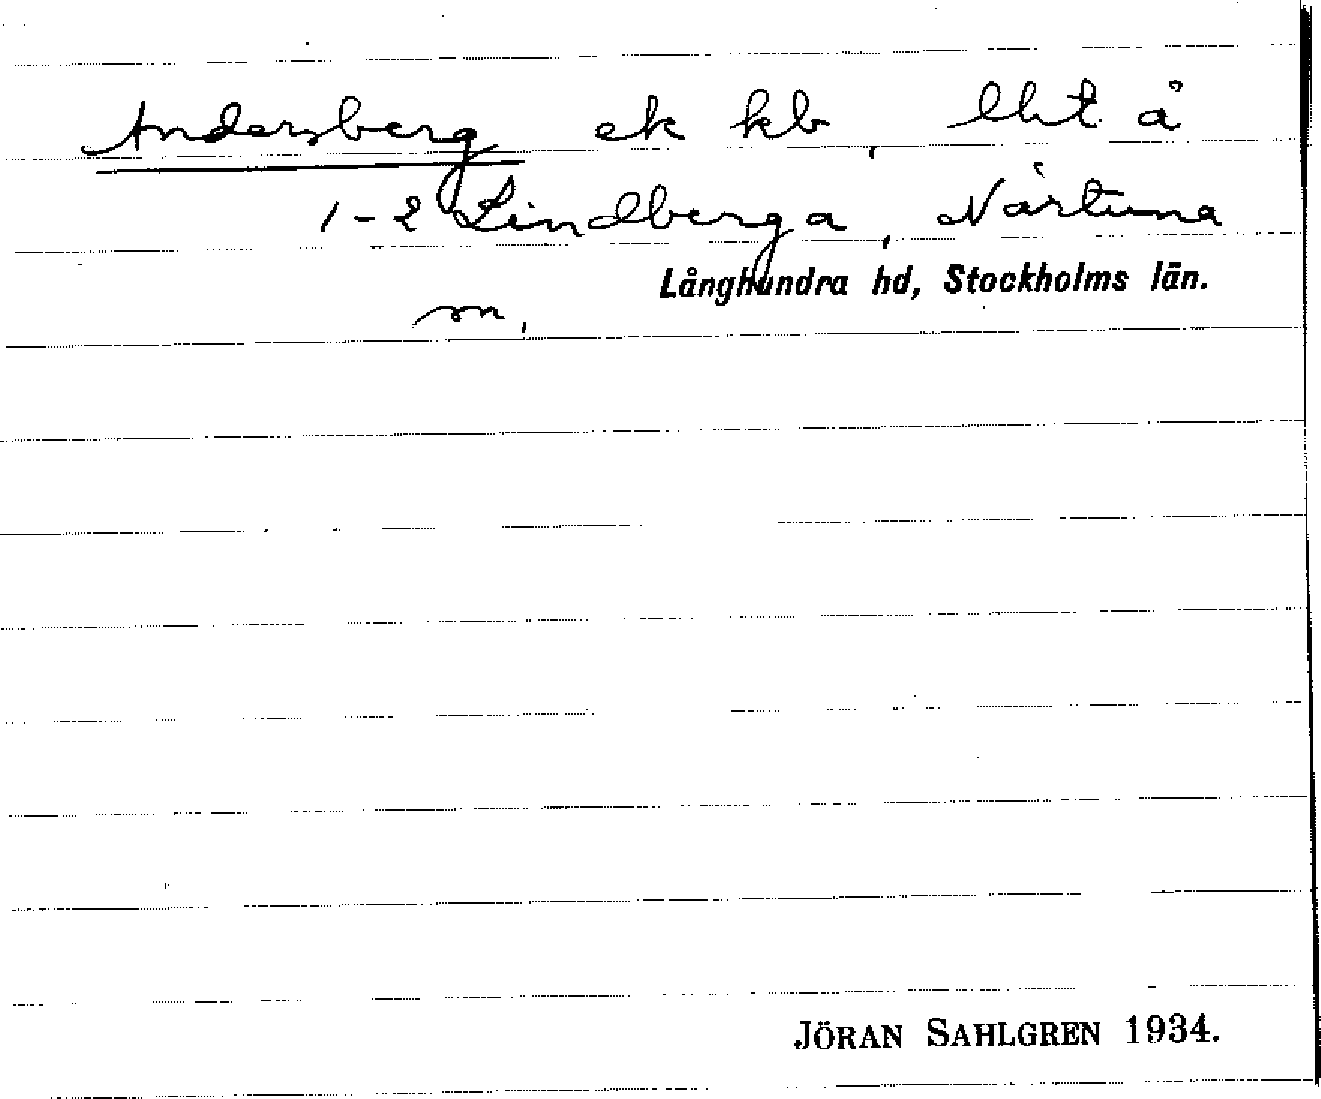 Andersberg ek kb, lht. å
1-2 Lindberga, Närtuna
Långhundra hd, Stockholms län.
sn,
JÖRAN SAHLGREN 1934.